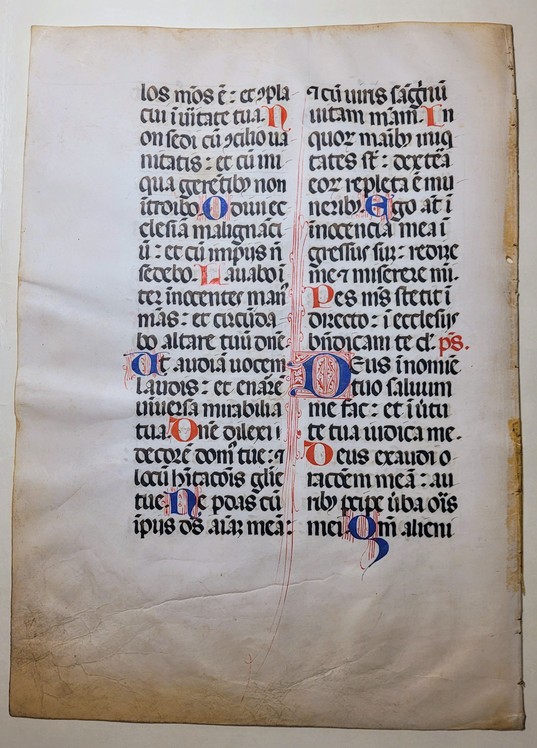 los mōs ē: et ꝯpla
cui ī ūitate tua. N
on sedi cū ꝯcilio ua
nitatis: et cū ini
qua gerētibȝ non
ītroibo O diui ec
clesiā malignātī
ū: et cū impiis ñ
sedebo. Lauabo ī
ter inocentes man᷒
mās: et circūda
bo altare tuū dñe
Ut audiā uocem
laudis: et enarē
uniuersa mirabilia
tua. Dñe dilexi
decorē dom᷒ tue: ⁊
locū hītacōis glīe
tue Ne pdas cū
īpiis dš aīaȝ meā:
⁊ cū uiris sāgnū
uitam mām. In
quoȝ maībȝ iniq
tates st̄: dextēa
eoȝ repleta ē mu
neribȝ. Ego āt ī
īnocencia mea ī
gressus sū: redīe
me ⁊ miserere mī.
Pes mš stetit ī
directo: ī ecclesiis
bn̄dicam te dē. pš.
DEus ī noīe
tuo saluum
me fac: et ī ūtu
te tua iudica me.
Deus exaudi o
racōem meā: au
ribȝ pcipe ūba oīs
mei Qm̄ alieni